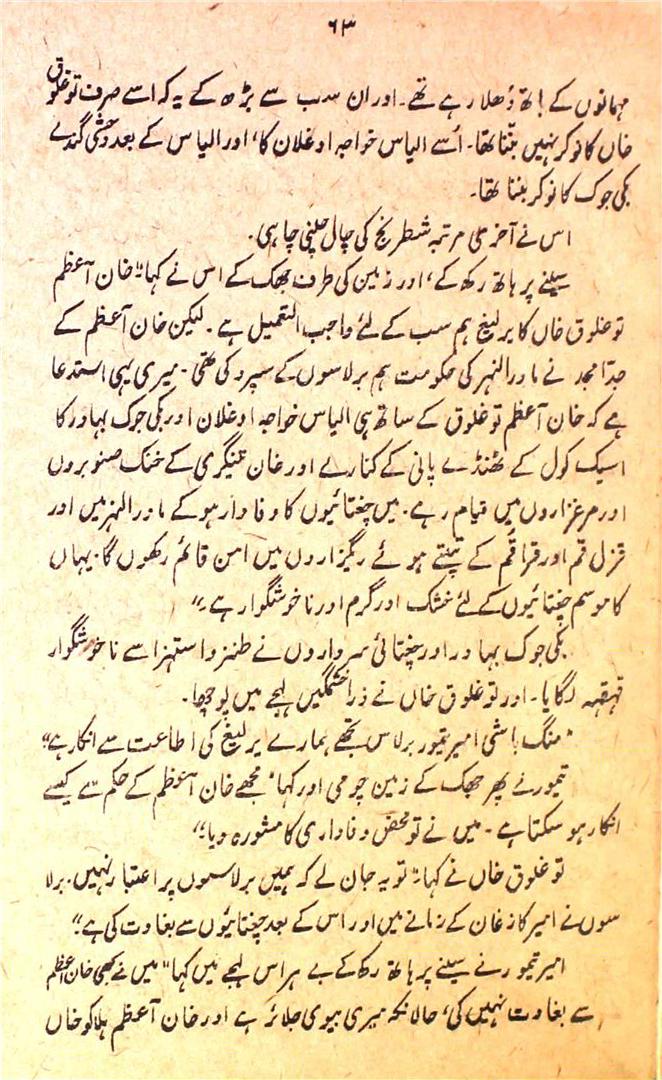 ۶۳
مہمانوں کے ہاتھ دُھلا رہے تھے۔ اور ان سب سے بڑھ کے یہ کہ اسے صرف توغلوق
خاں کا نوکر نہیں بننا تھا۔ اُسے الیاس خواجہ اوغلان کا، اور الیاس کے بعد وحشی گندے
بکی جوک کا نوکر بننا تھا۔
اس نے آخری مرتبہ شطرنج کی چال چلنی چاہی۔
سینے پر ہاتھ رکھ کے، اور زمین کی طرف جھک کے اس نے کہا: "خان آعظم
توغلوق خاں کا یرلیغ ہم سب کے لئے واجب التعمیل ہے۔ لیکن خان آعظم کے
جدّ امجد نے ماورالنہر کی حکومت ہم برلاسوں کے سپرد کی تھی۔ میری یہی استدعا
ہے کہ خان آعظم توغلوق کے ساتھ ہی الیاس خواجہ اوغلان اور بکی جوک بہادر کا
اسیک کول کے ٹھنڈے پانی کے کنارے اور خان تینگری کے خنک صنوبروں
اور مرغزاروں میں قیام رہے۔ میں چغتائیوں کا وفادار ہو کے ماورالنہر میں اور
قزل قم اور قراقم کے تپتے ہوئے ریگزاروں میں امن قائم رکھوں گا۔ یہاں
کا موسم چغتائیوں کے لئے خشک اور گرم اور ناخوشگوار ہے۔"
بکی جوک بہادر اور چغتائی سرداروں نے طنز و استہزا سے ناخوشگوار
قہقہہ لگایا۔ اور توغلوق خاں نے ذرا خشمگیں لہجے میں پوچھا۔
"منگ باشی امیر تیمور برلاس تجھے ہمارے یرلیغ کی اطاعت سے انکار ہے"
تیمور نے پھر جھک کے زمین چومی اور کہا "مجھے خان آعظم کے حکم سے کیسے
انکار ہو سکتا ہے۔ میں نے تو محض وفاداری کا مشورہ دیا۔"
توغلوق خاں نے کہا: "تو یہ جان لے کہ ہمیں برلاسوں پر اعتبار نہیں۔ برلا
سوں نے امیر کازغان کے زمانے میں اور اس کے بعد چغتائیوں سے بغاوت کی ہے۔"
امیر تیمور نے سینے پر ہاتھ رکھ کے بے ہراس لہجے میں کہا "میں نے کبھی خان آعظم
سے بغاوت نہیں کی، حالانکہ میری بیوی جلائر ہے اور خان آعظم ہلاکو خاں